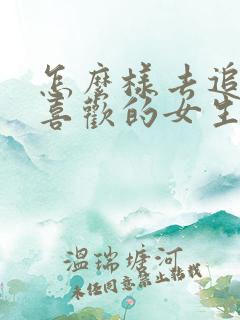 怎麼樣去追
喜歡的女生
溫瑞塘河
未经同意禁止转载